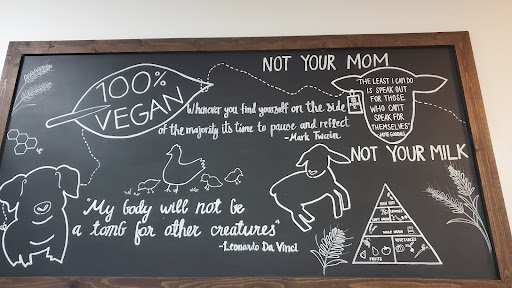 100%
VEGAN
NOT YOUR MOM
Wherever you find yourself on the side
of the majority its time to pause and reflect
-Mark Twain
"THE LEAST I CAN DO
IS SPEAK OUT
FOR THOSE
WHO CAN'T
SPEAK FOR
THEMSELVES"
-JANE GOODALL
NOT YOUR MILK
"My body will not be
a tomb for other creatures"
-Leonardo Da Vinci
WHOLE GRAINS
FRUITS
VEGETABLES